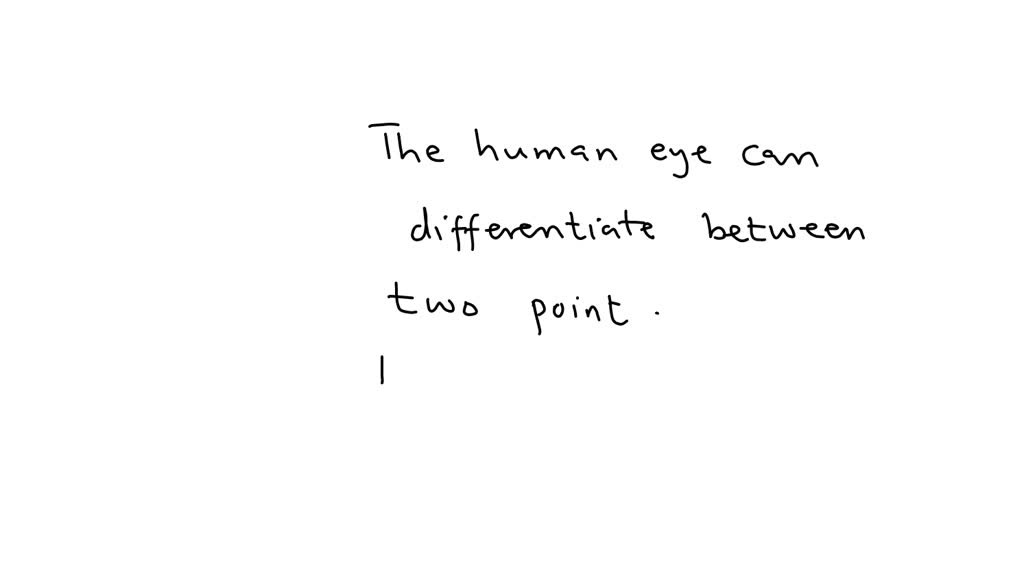 The human eye can
differentiate between
two point.
|